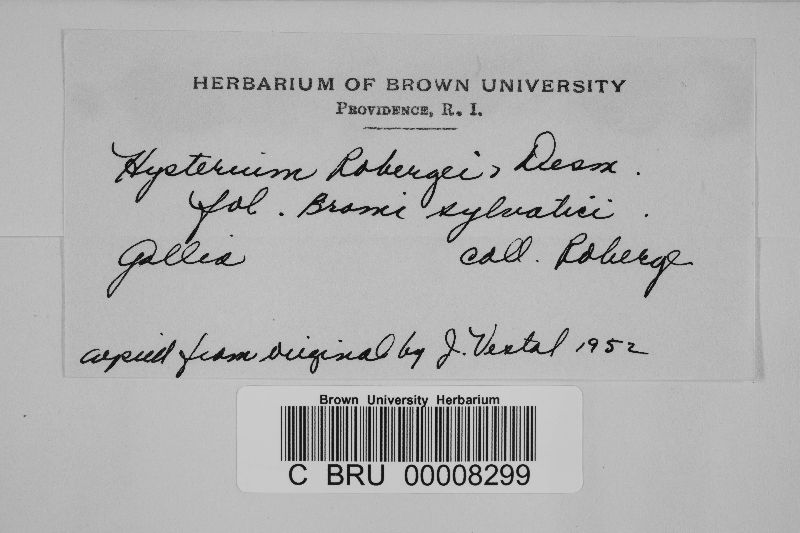 HERBARIUM OF BROWN UNIVERSITY
PROVIDENCE, R. I.
Hysterium Robergei, Desm.
fol. Bromi sylvatici.
Gallia coll. Roberge
copied from original by J. Vestal 1952
Brown University Herbarium
C BRU 00008299